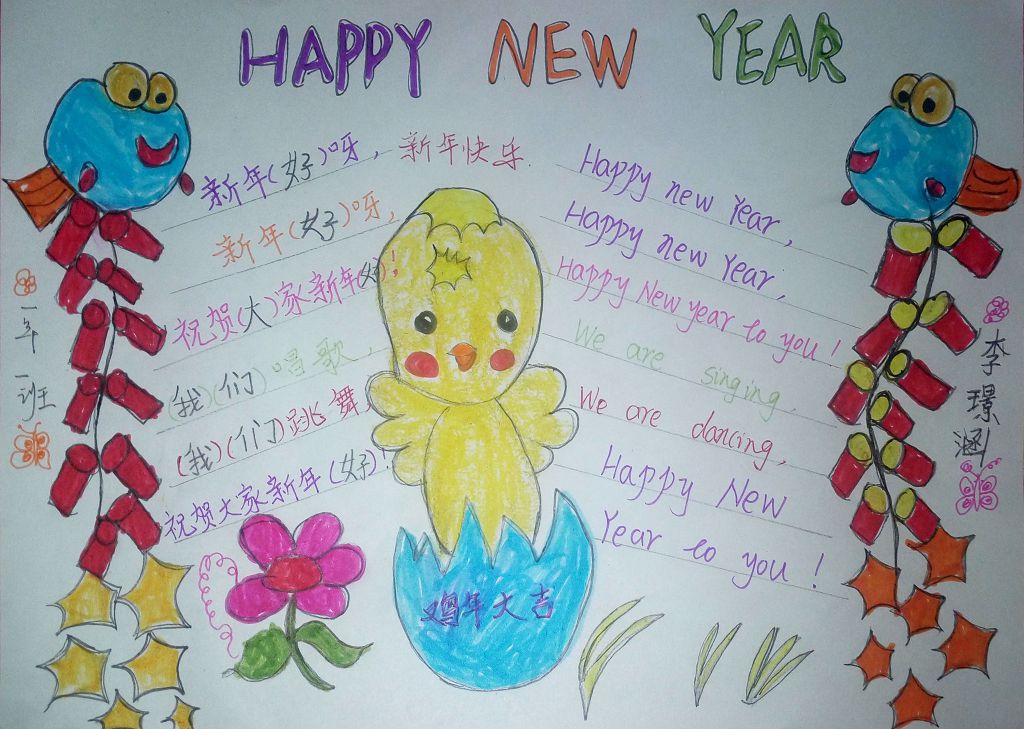 HAPPY NEW YEAR
新年(好)呀，新年快乐.
新年(好)呀，
祝贺(大)家新年(好)！
(我)(们)唱歌，
(我)(们)跳舞，
祝贺大家新年(好)！
Happy new Year,
Happy new Year,
Happy New year to you!
We are singing,
We are dancing,
Happy New
Year to you!
鸡年大吉
一年一班
李璟涵